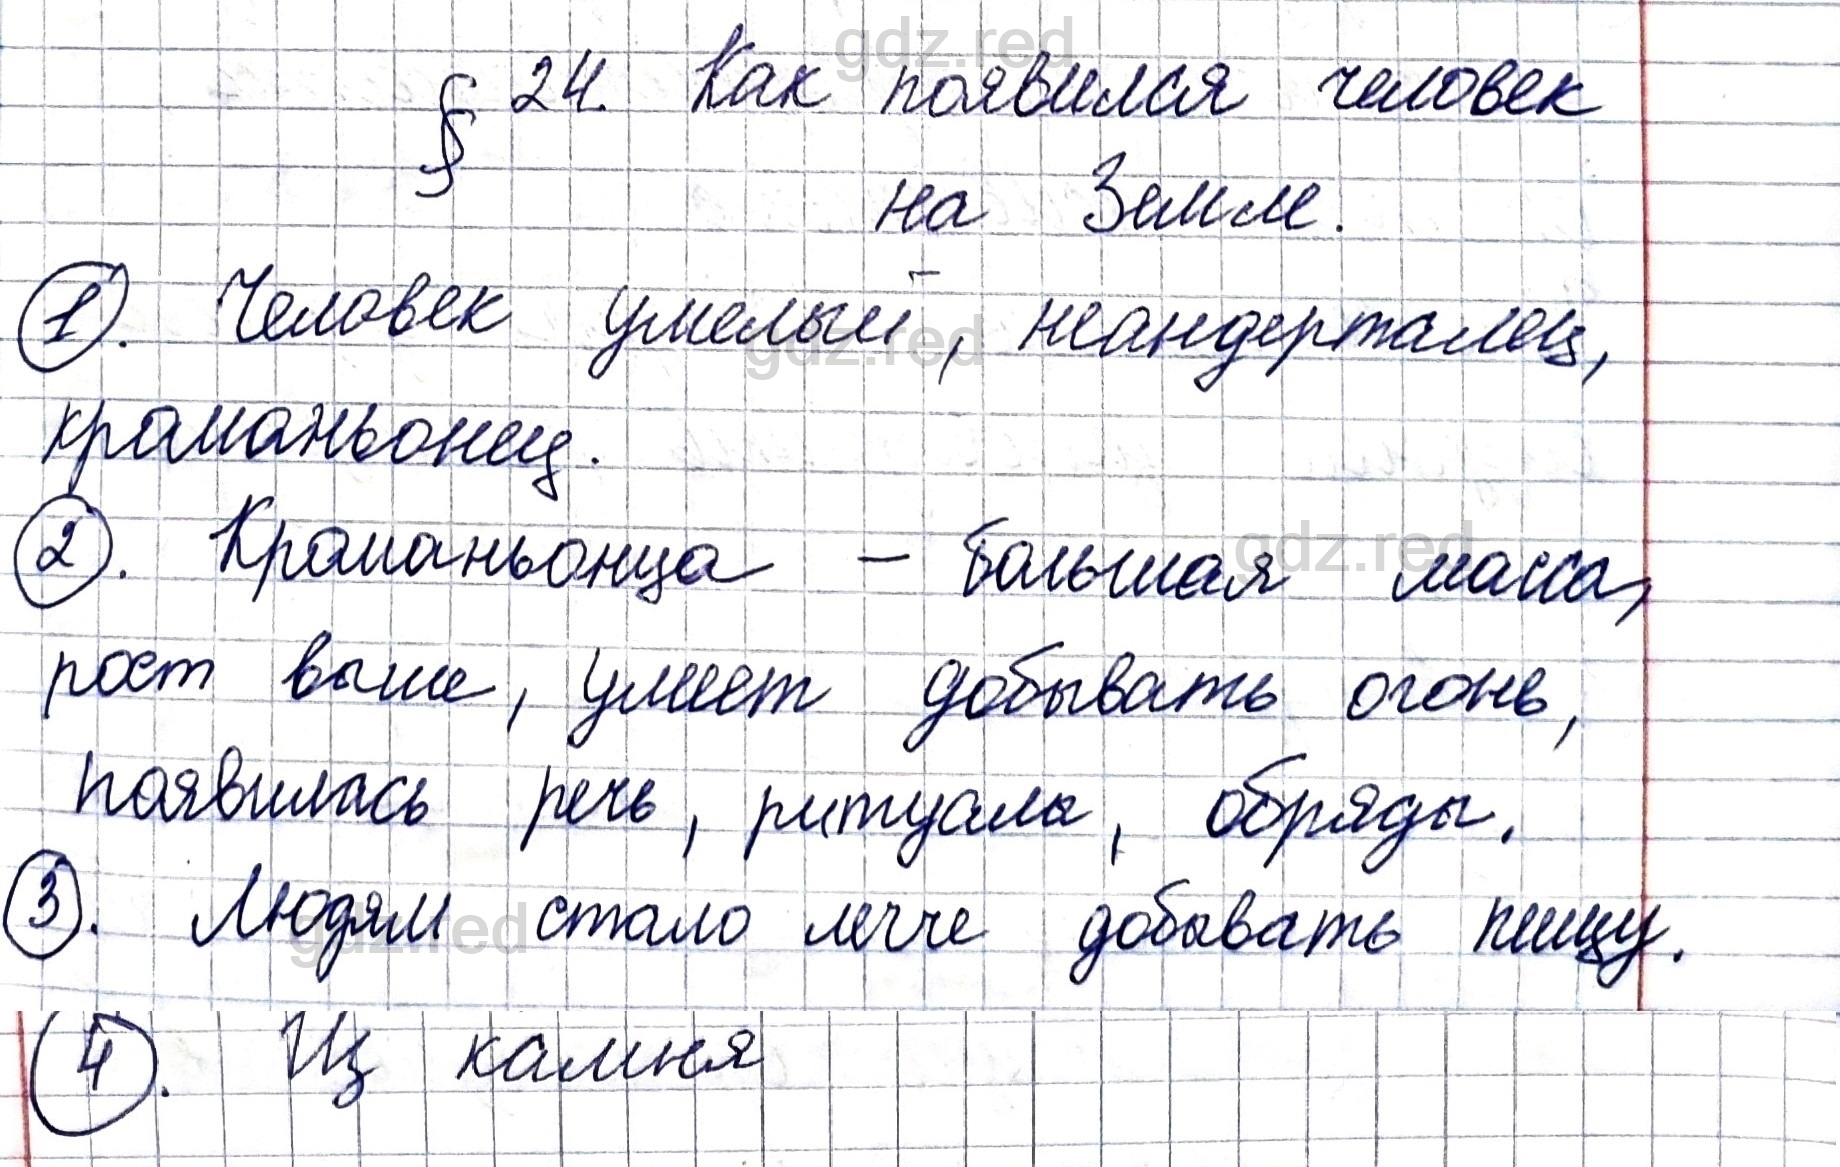 § 24. Как появился человек
на Земле.
1. Человек умелый, неандерталец,
кроманьонец.
2. Кроманьонца – большая масса,
рост выше, умеет добывать огонь,
появилась речь, ритуалы, обряды.
3. Людям стало легче добывать пищу.
4. Из камня
gdz.red
gdz.red
gdz.red
gdz.red